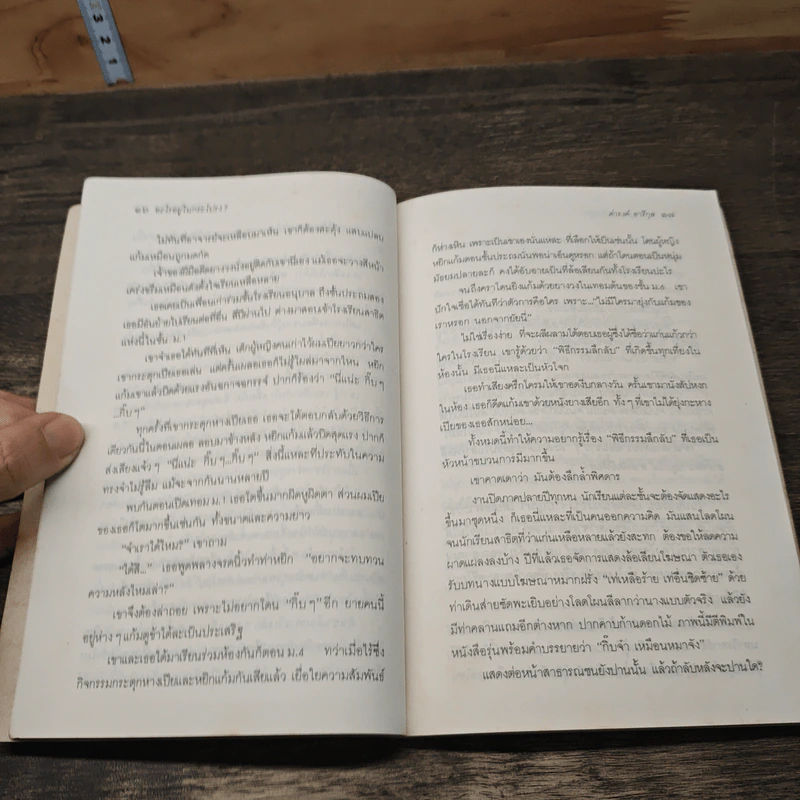 3
2
1
๑๖ อะไรอยู่ในกระโปรง?
ไม่ทันที่อาจารย์จะเหลือบมาเห็น เขาก็ต้องสะดุ้ง แสบแปลบ
แก้มเหมือนถูกมดกัด
เจ้าของฝีมือดีดยางวงนั่งอยู่ติดกับเขานี่เอง แม้เธอจะวางสีหน้า
เคร่งขรึมเหมือนดังตั้งใจเรียนเหลือหลาย
เธอเคยเป็นเพื่อนเก่าร่วมชั้นโรงเรียนอนุบาล ถึงชั้นประถมสอง
เธอมีอันย้ายไปเรียนต่อที่อื่น สี่ปีผ่านไป ต่างมาสอบเข้าโรงเรียนสาธิต
แห่งนี้ในชั้น ม.๑
เขาจำเธอได้ทันทีที่เห็น เด็กผู้หญิงคนเก่าไว้ผมเปียยาวกว่าใคร
เขากระตุกเปียเธอเล่น แต่ครั้นเผลอเธอก็ไม่รู้โผล่มาจากไหน หยิก
แก้มเขาแล้วบิดด้วยแรงอันอาจองกรรจ์ ปากก็ร้องว่า “นี่แน่ะ กิ๊บๆ
...กิ๊บๆ”
ทุกครั้งที่เขากระตุกหางเปียเธอ เธอจะโต้ตอบกลับด้วยวิธีการ
เดียวกันนี้ในตอนเผลอ ลอบมาข้างหลัง หยิกแก้มแล้วบิดสุดแรง ปากก็
ส่งเสียงแจ้วๆ “นี่แน่ะ กิ๊บๆ...กิ๊บๆ” สิ่งนี้แหละที่ประทับในความ
ทรงจำไม่รู้ลืม แม้จะจากกันนานหลายปี
พบกันตอนเปิดเทอม ม.๑ เธอโตขึ้นมากผิดหูผิดตา ส่วนผมเปีย
ของเธอก็โตมากขึ้นเช่นกัน ทั้งขนาดและความยาว
“จำเราได้ไหม?” เขาถาม
“ได้สิ...” เธอพูดพลางจรดนิ้วทำท่าหยิก “อยากจะทบทวน
ความหลังไหมเล่า?”
เขาจึงต้องล่าถอย เพราะไม่อยากโดน “กิ๊บๆ” อีก ยายคนนี้
อยู่ห่างๆ แก้มดูข้าได้ละเป็นประเสริฐ
เขาและเธอได้มาเรียนร่วมห้องกันก็ตอน ม.๔ ทว่าเมื่อไร้ซึ่ง
กิจกรรมกระตุกหางเปียและหยิกแก้มกันเสียแล้ว เยื่อใยความสัมพันธ์
ดำรงค์ อารีกุล ๑๗
ก็ห่างเหิน เพราะเป็นเขาเองนั่นแหละ ที่เลือกให้เป็นเช่นนั้น โดนผู้หญิง
หยิกแก้มตอนชั้นประถมน่ะมันพอน่าเอ็นดูหรอก แต่ถ้าโดนตอนเป็นหนุ่ม
มัธยมปลายละก็ คงได้อับอายเป็นที่ล้อเลียนกันทั้งโรงเรียนปะไร
จนถึงคราโดนยิงแก้มด้วยยางวงในเทอมต้นของชั้น ม.๖ เขา
ปักใจเชื่อได้ทันทีว่าตัวการคือใคร เพราะ...“ไม่มีใครมายุ่งกับแก้มของ
เราหรอก นอกจากยัยนี่”
ไม่ใช่เรื่องง่าย ที่จะผลีผลามโต้ตอบเธอผู้ซึ่งได้ชื่อว่าแก่นแก้วกว่า
ใครในโรงเรียน เขารู้ด้วยว่า “พิธีกรรมลึกลับ” ที่เกิดขึ้นทุกเที่ยงใน
ห้องนั้น มีเธอนี่แหละเป็นหัวโจก
เธอทำเสียงครึกโครมให้เขาอดงีบกลางวัน ครั้นเขามานั่งสัปหงก
ในห้อง เธอก็ดีดแก้มเขาด้วยหนังยางเสียอีก ทั้งๆ ที่เขาไม่ได้ยุ่งกะหาง
เปียของเธอสักหน่อย...
ทั้งหมดนี้ทำให้ความอยากรู้เรื่อง “พิธีกรรมลึกลับ” ที่เธอเป็น
หัวหน้าขบวนการมีมากขึ้น
เขาคาดเดาว่า มันต้องลึกล้ำพิสดาร
งานปิดภาคปลายปีทุกหน นักเรียนแต่ละชั้นจะต้องจัดแสดงอะไร
ขึ้นมาชุดหนึ่ง ก็เธอนี่แหละที่เป็นคนออกความคิด มันแสนโลดโผน
จนนักเรียนสาธิตที่ว่าแก่นเหลือหลายแล้วยังสะทก ต้องขอให้ลดความ
ผาดแผลงลงบ้าง ปีที่แล้วเธอจัดการแสดงล้อเลียนโฆษณา ตัวเธอเอง
รับบทนางแบบโฆษณาหมากฝรั่ง “เท่เหลือร้าย เท่อื่นชิดซ้าย” ด้วย
ท่าเดินส่ายซัดพะเยิบอย่างโลดโผนลีลากว่านางแบบตัวจริง แล้วยัง
มีท่าคลานแถมอีกต่างหาก ปากคาบก้านดอกไม้ ภาพนี้มีตีพิมพ์ใน
หนังสือรุ่นพร้อมคำบรรยายว่า “กิ๊บจ๋า เหมือนหมาจัง”
แสดงต่อหน้าสาธารณชนยังปานนั้น แล้วถ้าลับหลังจะปานใด?